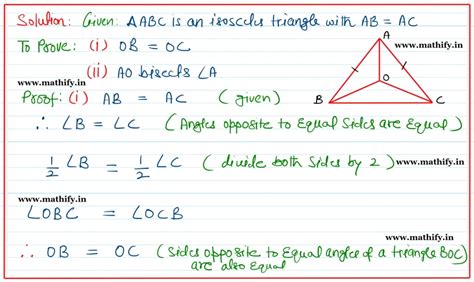 Solution: Given: ΔABC is an isosceles triangle with AB = AC
To Prove: (i) OB = OC
www.mathify.in
A
(ii) AO bisects ∠A
www.mathify.in
O
Proof: (i) AB = AC (given)
B C
∴ ∠B = ∠C (Angles opposite to Equal Sides are Equal)
1/2 ∠B = 1/2 ∠C (divide both Sides by 2)
www.mathify.in
www.mathify.in
∠OBC = ∠OCB
www.mathify.in
∴ OB = OC (Sides opposite to Equal angles of a triangle BOC)
are also Equal